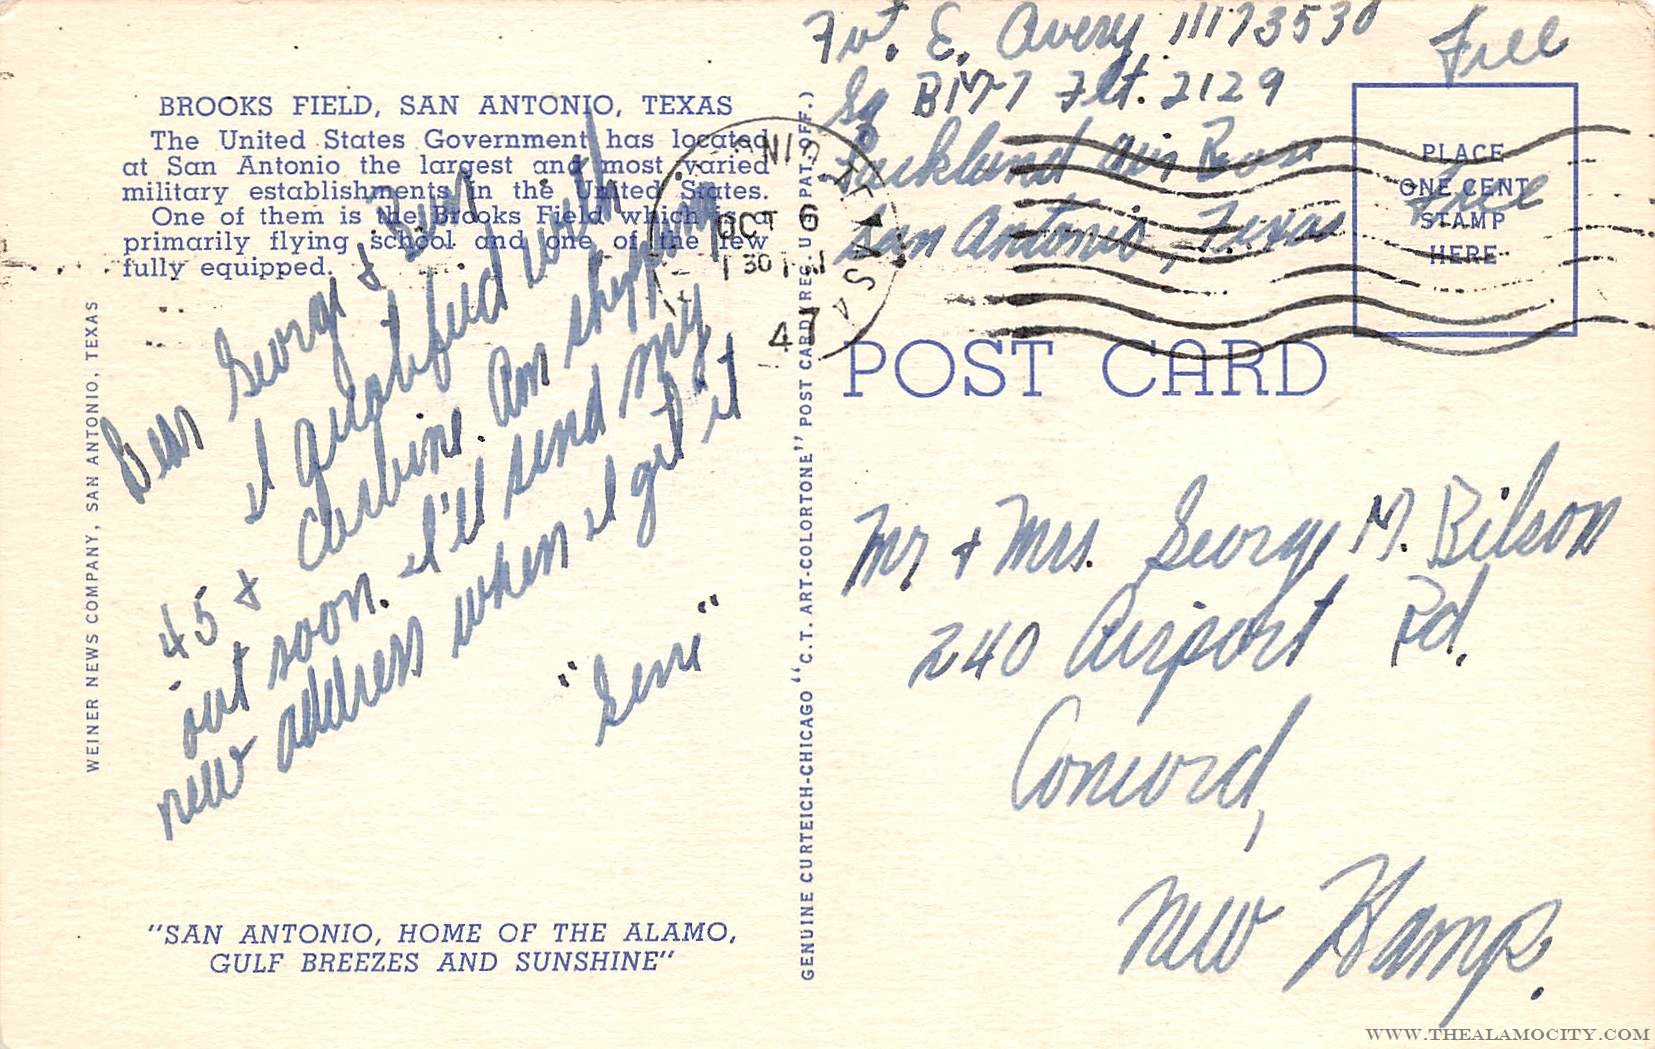 BROOKS FIELD, SAN ANTONIO, TEXAS
The United States Government has located
at San Antonio the largest and most varied
military establishments in the United States.
One of them is the Brooks Field which is a
primarily flying school and one of the few
fully equipped.
Dear George &
I qualified with
45 & Carbine. Am shipping
out soon. I'll send my
new address when I get it
"Gene"
"SAN ANTONIO, HOME OF THE ALAMO,
GULF BREEZES AND SUNSHINE"
WEINER NEWS COMPANY, SAN ANTONIO, TEXAS
GENUINE CURTEICH-CHICAGO "C.T. ART-COLORTONE" POST CARD (REG. U.S. PAT. OFF.)
Pvt. E. Avery 11173530
Sq BM-7 Flt. 2129
Lackland Air Base
San Antonio, Texas
Free
Free
PLACE
ONE CENT
STAMP
HERE
OCT 6
1 30
47
POST CARD
Mr + Mrs. George M. Bilson
240 Airport Rd.
Concord,
New Hamp.
WWW.THEALAMOCITY.COM